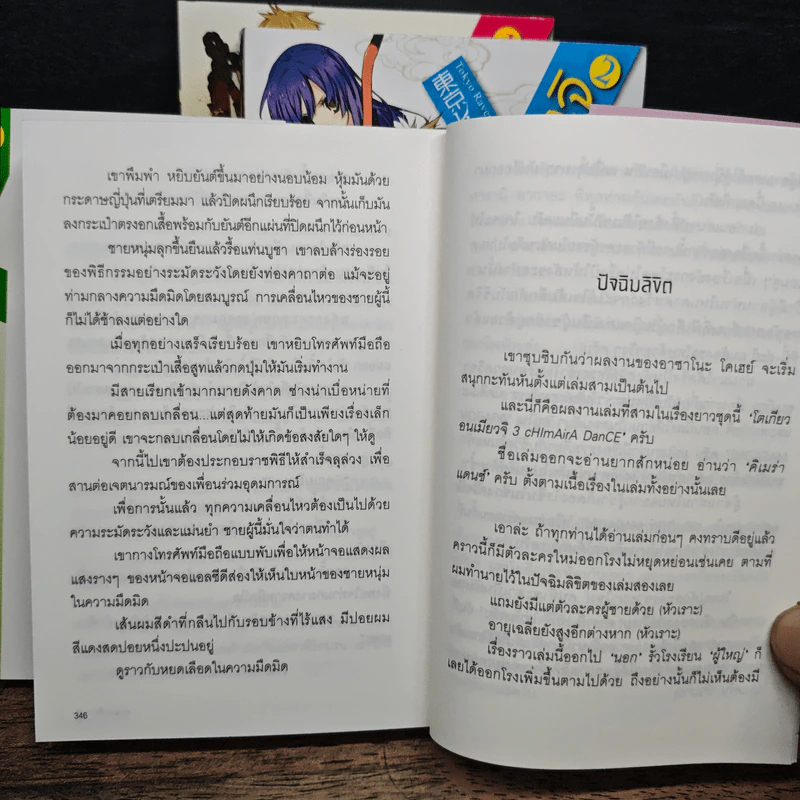 2
Tokyo Rav
東京
เขาพึมพำ หยิบยันต์ขึ้นมาอย่างนอบน้อม หุ้มมันด้วย
กระดาษญี่ปุ่นที่เตรียมมา แล้วปิดผนึกเรียบร้อย จากนั้นเก็บมัน
ลงกระเป๋าตรงอกเสื้อพร้อมกับยันต์อีกแผ่นที่ปิดผนึกไว้ก่อนหน้า
ชายหนุ่มลุกขึ้นยืนแล้วรื้อแท่นบูชา เขาลบล้างร่องรอย
ของพิธีกรรมอย่างระมัดระวังโดยยังท่องคาถาต่อ แม้จะอยู่
ท่ามกลางความมืดมิดโดยสมบูรณ์ การเคลื่อนไหวของชายผู้นี้
ก็ไม่ได้ช้าลงแต่อย่างใด
เมื่อทุกอย่างเสร็จเรียบร้อย เขาหยิบโทรศัพท์มือถือ
ออกมาจากกระเป๋าเสื้อสูทแล้วกดปุ่มให้มันเริ่มทำงาน
มีสายเรียกเข้ามากมายดังคาด ช่างน่าเบื่อหน่ายที่
ต้องมาคอยกลบเกลื่อน...แต่สุดท้ายมันก็เป็นเพียงเรื่องเล็ก
น้อยอยู่ดี เขาจะกลบเกลื่อนโดยไม่ให้เกิดข้อสงสัยใดๆ ให้ดู
จากนี้ไปเขาต้องประกอบราชพิธีให้สำเร็จลุล่วง เพื่อ
สานต่อเจตนารมณ์ของเพื่อนร่วมอุดมการณ์
เพื่อการนั้นแล้ว ทุกความเคลื่อนไหวต้องเป็นไปด้วย
ความระมัดระวังและแม่นยำ ชายผู้นี้มั่นใจว่าตนทำได้
เขากางโทรศัพท์มือถือแบบพับเพื่อให้หน้าจอแสดงผล
แสงรางๆ ของหน้าจอแอลซีดีส่องให้เห็นใบหน้าของชายหนุ่ม
ในความมืดมิด
เส้นผมสีดำที่กลืนไปกับรอบข้างที่ไร้แสง มีปอยผม
สีแดงสดปอยหนึ่งปะปนอยู่
ดูราวกับหยดเลือดในความมืดมิด
346
ปัจฉิมลิขิต
เขาซุบซิบกันว่าผลงานของอาซาโนะ โคเฮย์ จะเริ่ม
สนุกกะทันหันตั้งแต่เล่มสามเป็นต้นไป
และนี่ก็คือผลงานเล่มที่สามในเรื่องยาวชุดนี้ 'โตเกียว
อนเมียวจิ 3 cHImAirA DanCE' ครับ
ชื่อเล่มออกจะอ่านยากสักหน่อย อ่านว่า 'คิเมร่า
แดนซ์' ครับ ตั้งตามเนื้อเรื่องในเล่มทั้งอย่างนั้นเลย
เอาล่ะ ถ้าทุกท่านได้อ่านเล่มก่อนๆ คงทราบดีอยู่แล้ว
คราวนี้ก็มีตัวละครใหม่ออกโรงไม่หยุดหย่อนเช่นเคย ตามที่
ผมทำนายไว้ในปัจฉิมลิขิตของเล่มสองเลย
แถมยังมีแต่ตัวละครผู้ชายด้วย (หัวเราะ)
อายุเฉลี่ยยังสูงอีกต่างหาก (หัวเราะ)
เรื่องราวเล่มนี้ออกไป 'นอก' รั้วโรงเรียน 'ผู้ใหญ่' ก็
เลยได้ออกโรงเพิ่มขึ้นตามไปด้วย ถึงอย่างนั้นก็ไม่เห็นต้องมี